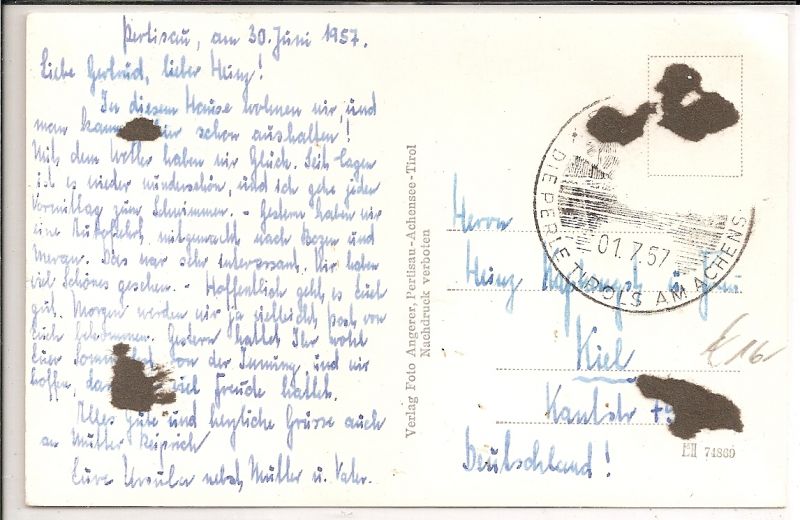 Pertisau, am 30. Juni 1957.
Liebe Gertrud, lieber Heinz!
In diesem Hause wohnen wir, und
man kann hier schon aushalten!
Mit dem Wetter haben wir Glück. Seit Tagen
ist es wieder wunderschön, und ich gehe jeden
Vormittag zum Schwimmen. - Gestern haben wir
eine Autofahrt mitgemacht nach Bozen und
Meran. Das war sehr interessant. Wir haben
viel Schönes gesehen. - Hoffentlich geht es Euch
gut. Morgen werden wir ja vielleicht Post von
Euch bekommen. Gestern hattet Ihr wohl
Euer von der Innung, und wir
hoffen, viel Freude hattet.
Alles Gute und herzliche Grüsse auch
an Mutter
Eure Ursula nebst Mutter u. Vater.
Verlag Foto Angerer, Pertisau-Achensee-Tirol
Nachdruck verboten
DIE PERLE TIROLS AM ACHENS
01.7.57
Herrn
Heinz u. Frau
Kiel
Kantstr
Deutschland!
74869